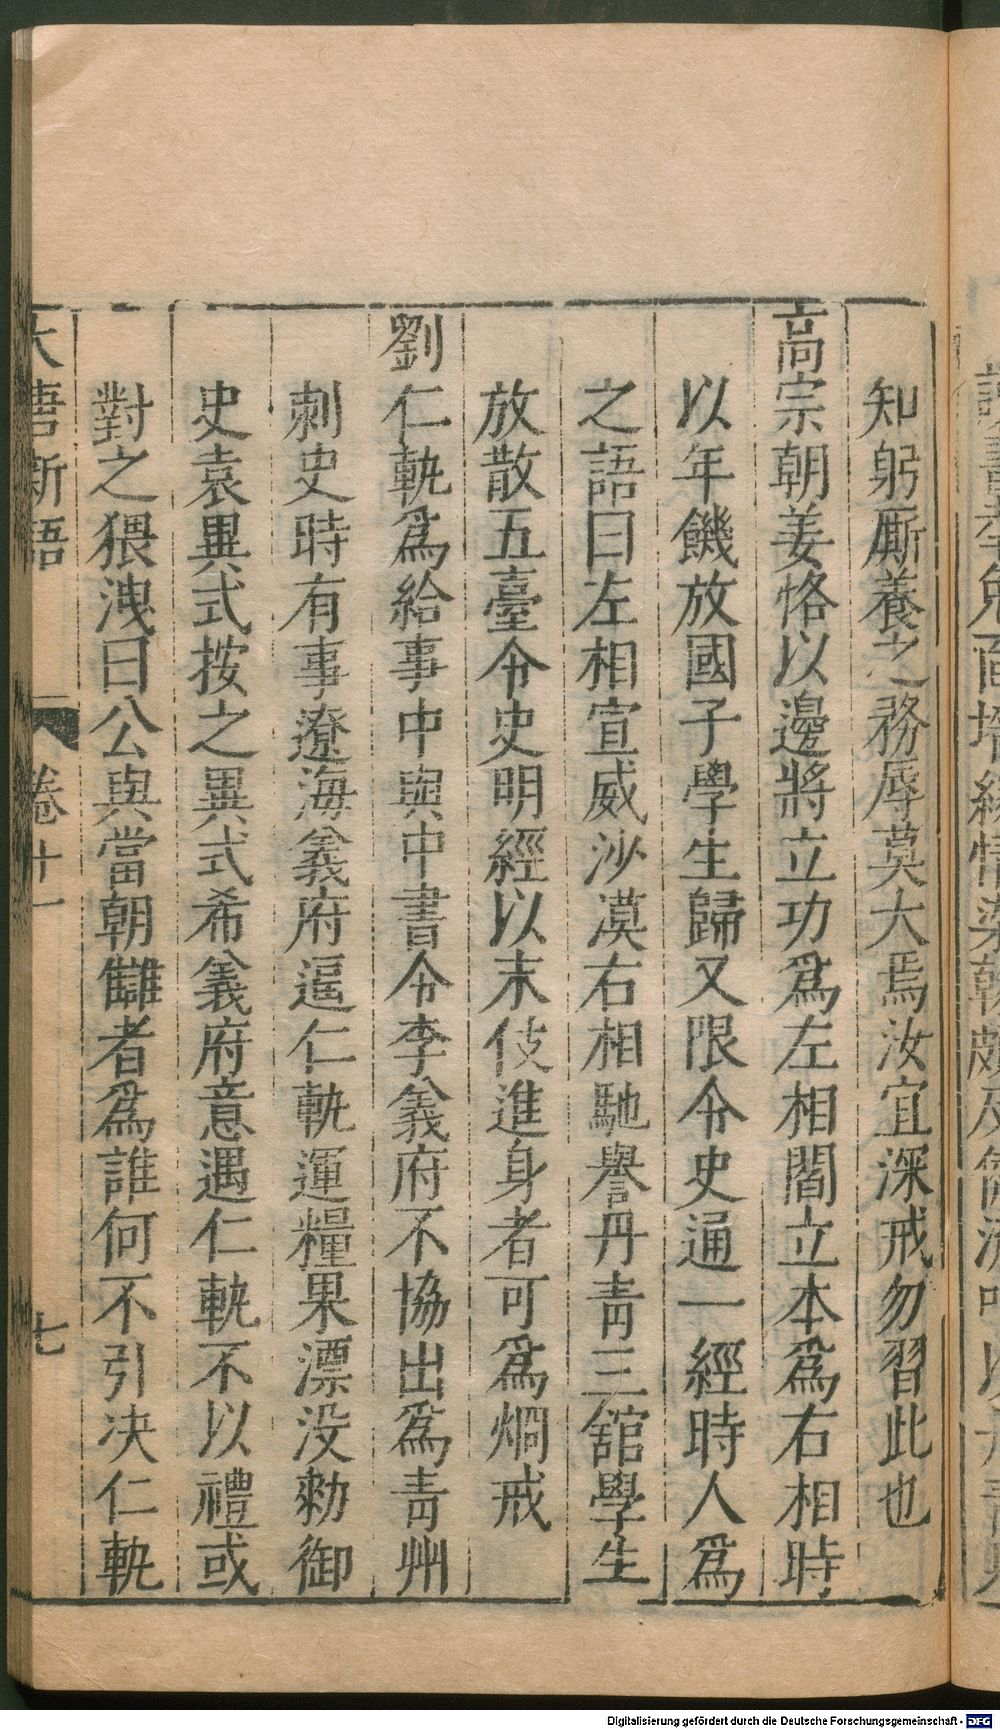 知躬厮養之務辱莫大焉汝宜深戒勿習此也
高宗朝姜恪以邊將立功爲左相閻立本爲右相時
以年饑放國子學生歸又限令史通一經時人爲
之語曰左相宣威沙漠右相馳譽丹青三舘學生
放散五臺令史明經以末伎進身者可爲烱戒
劉仁軌爲給事中與中書令李義府不協出爲青州
刺史時有事遼海義府逼仁軌運糧果漂没勑御
史袁異式按之異式希義府意遇仁軌不以禮或
對之猥洩曰公與當朝讎者爲誰何不引决仁軌
大唐新語 卷十一 七
Digitalisierung gefördert durch die Deutsche Forschungsgemeinschaft - DFG